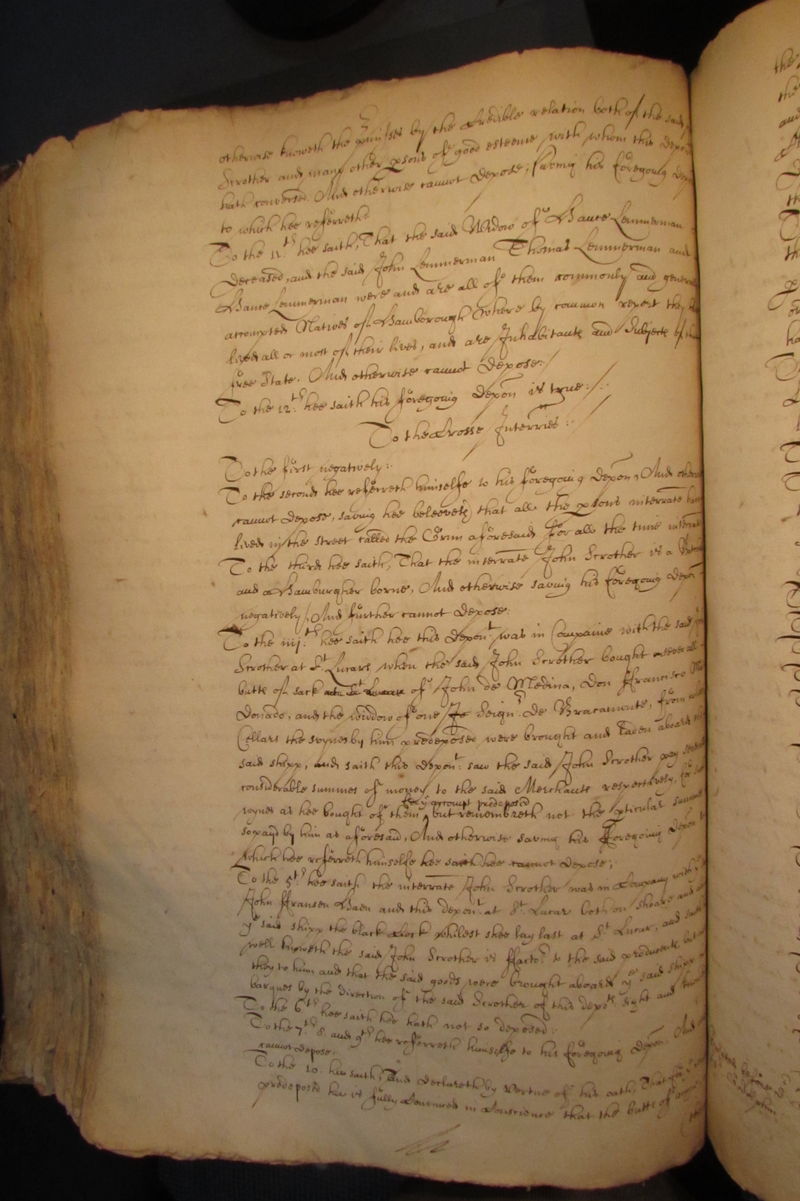 otherwise knoweth the p̄misses by the Credible relation both of the said
Scrother and many other psons of good esteeme with whom this depo
hath conversed. And otherwise cannot depose, saving his foregoing
to which hee referreth.
To the 11.th hee saith, That the said Widdow of Hance Lemmerman
deceased, and the said John Lemmerman Thomas Lemmerman and
Hance Lemmerman were and are all of them commonly and genera
accompted Natives of Hamborough where by common repert they
lived all or most of their lives, and are Inhabitants and Subjects of th
free State. And otherwise cannot depose./
To the 12.th hee saith his foregoing depon is true./.
To the Crosse Interries:
To the first negatively:
To the second hee referreth himselfe to his foregoing depon, And other
cannot depose, saving hee beleeveth that all the psons interrate
lived in the street called the Crim aforesaid for all the time interrate
To the third hee saith, That the interrate John Scrother is a
and a Hamburgher borne, And otherwise saving his foregoing depon
negatively, And further cannot depose.
To the iiij.th hee saith hee this depont was in Companie with the said
Scrother at St Lucars when the said John Scrother bought severall
butts of sack of John de Medina, Don Francisco
Donado, and the widdow of one Seignr. de Bracamonte, from
Cellars the wynes by him predeposed were brought and laden aboard
said shipp, and saith this depont. saw the said John Scrother pay
considerable summes of money to the said Merchants respectively, for
wynes as hee bought of them, but remembreth not the pticular summes
by accompt predeposed
so payd by him as aforesaid, And otherwise saving his foregoing depon
which hee referreth himselfe hee saith hee cannot depose,
To the 5th. hee saith the interrate John Scrother was in Company with
John Fransen Haen and this depont. at St. Lucar both on shoare and
ye said shipp the black Cock whilest shee lay last at St Lucar, and
well knoweth the said John Scrother is ffactor to the said producents
they to him and that the said goods were brought aboard ye said shipp
barques by the direction of the said Scrother of this depots sight and
To the 6th hee saith hee hath not so deposed:
To the 7th 8 and 9th hee referreth himselfe to his foregoing depon. And
cannot depose.
To the 10. hee saith, and declareth by vertue of his oath That
predeposed hee is fully convinced in Conscience that the butts of